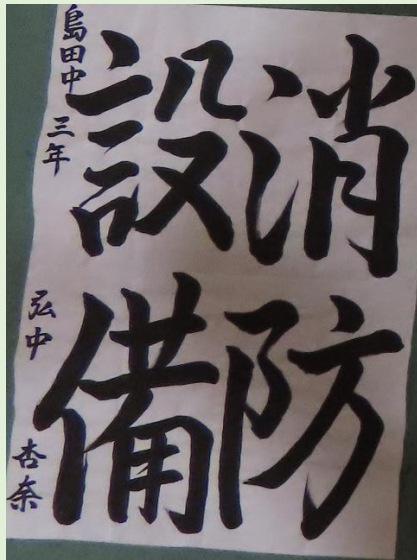 消防
設備
島田中 三年 弘中 杏奈